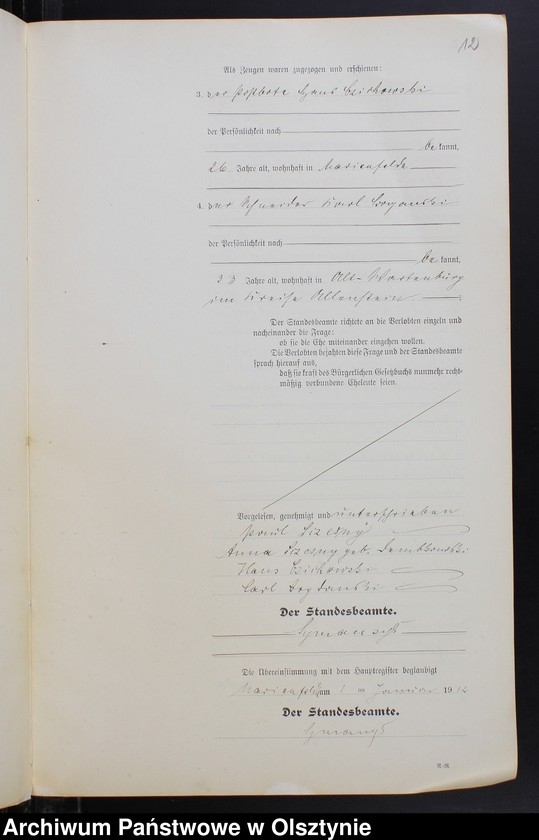 12
Als Zeugen waren zugezogen und erschienen:
3. der Postbote Hans Czichowski
der Persönlichkeit nach
be kannt,
26 Jahre alt, wohnhaft in Marienfelde
4. der Schneider Karl
der Persönlichkeit nach
be kannt,
33 Jahre alt, wohnhaft in Alt-Wartenburg
im Kreise Allenstein
Der Standesbeamte richtete an die Verlobten einzeln und
nacheinander die Frage:
ob sie die Ehe miteinander eingehen wollen.
Die Verlobten bejahten diese Frage und der Standesbeamte
sprach hierauf aus,
daß sie kraft des Bürgerlichen Gesetzbuchs nunmehr recht-
mäßig verbundene Eheleute seien.
Vorgelesen, genehmigt und unterschrieben
Paul Sczesny
Anna Sczesny geb. Dembkowski
Hans Czichowski
Carl
Der Standesbeamte.
Die Übereinstimmung mit dem Hauptregister beglaubigt
Marienfelde am Januar 1912
Der Standesbeamte.
Archiwum Państwowe w Olsztynie